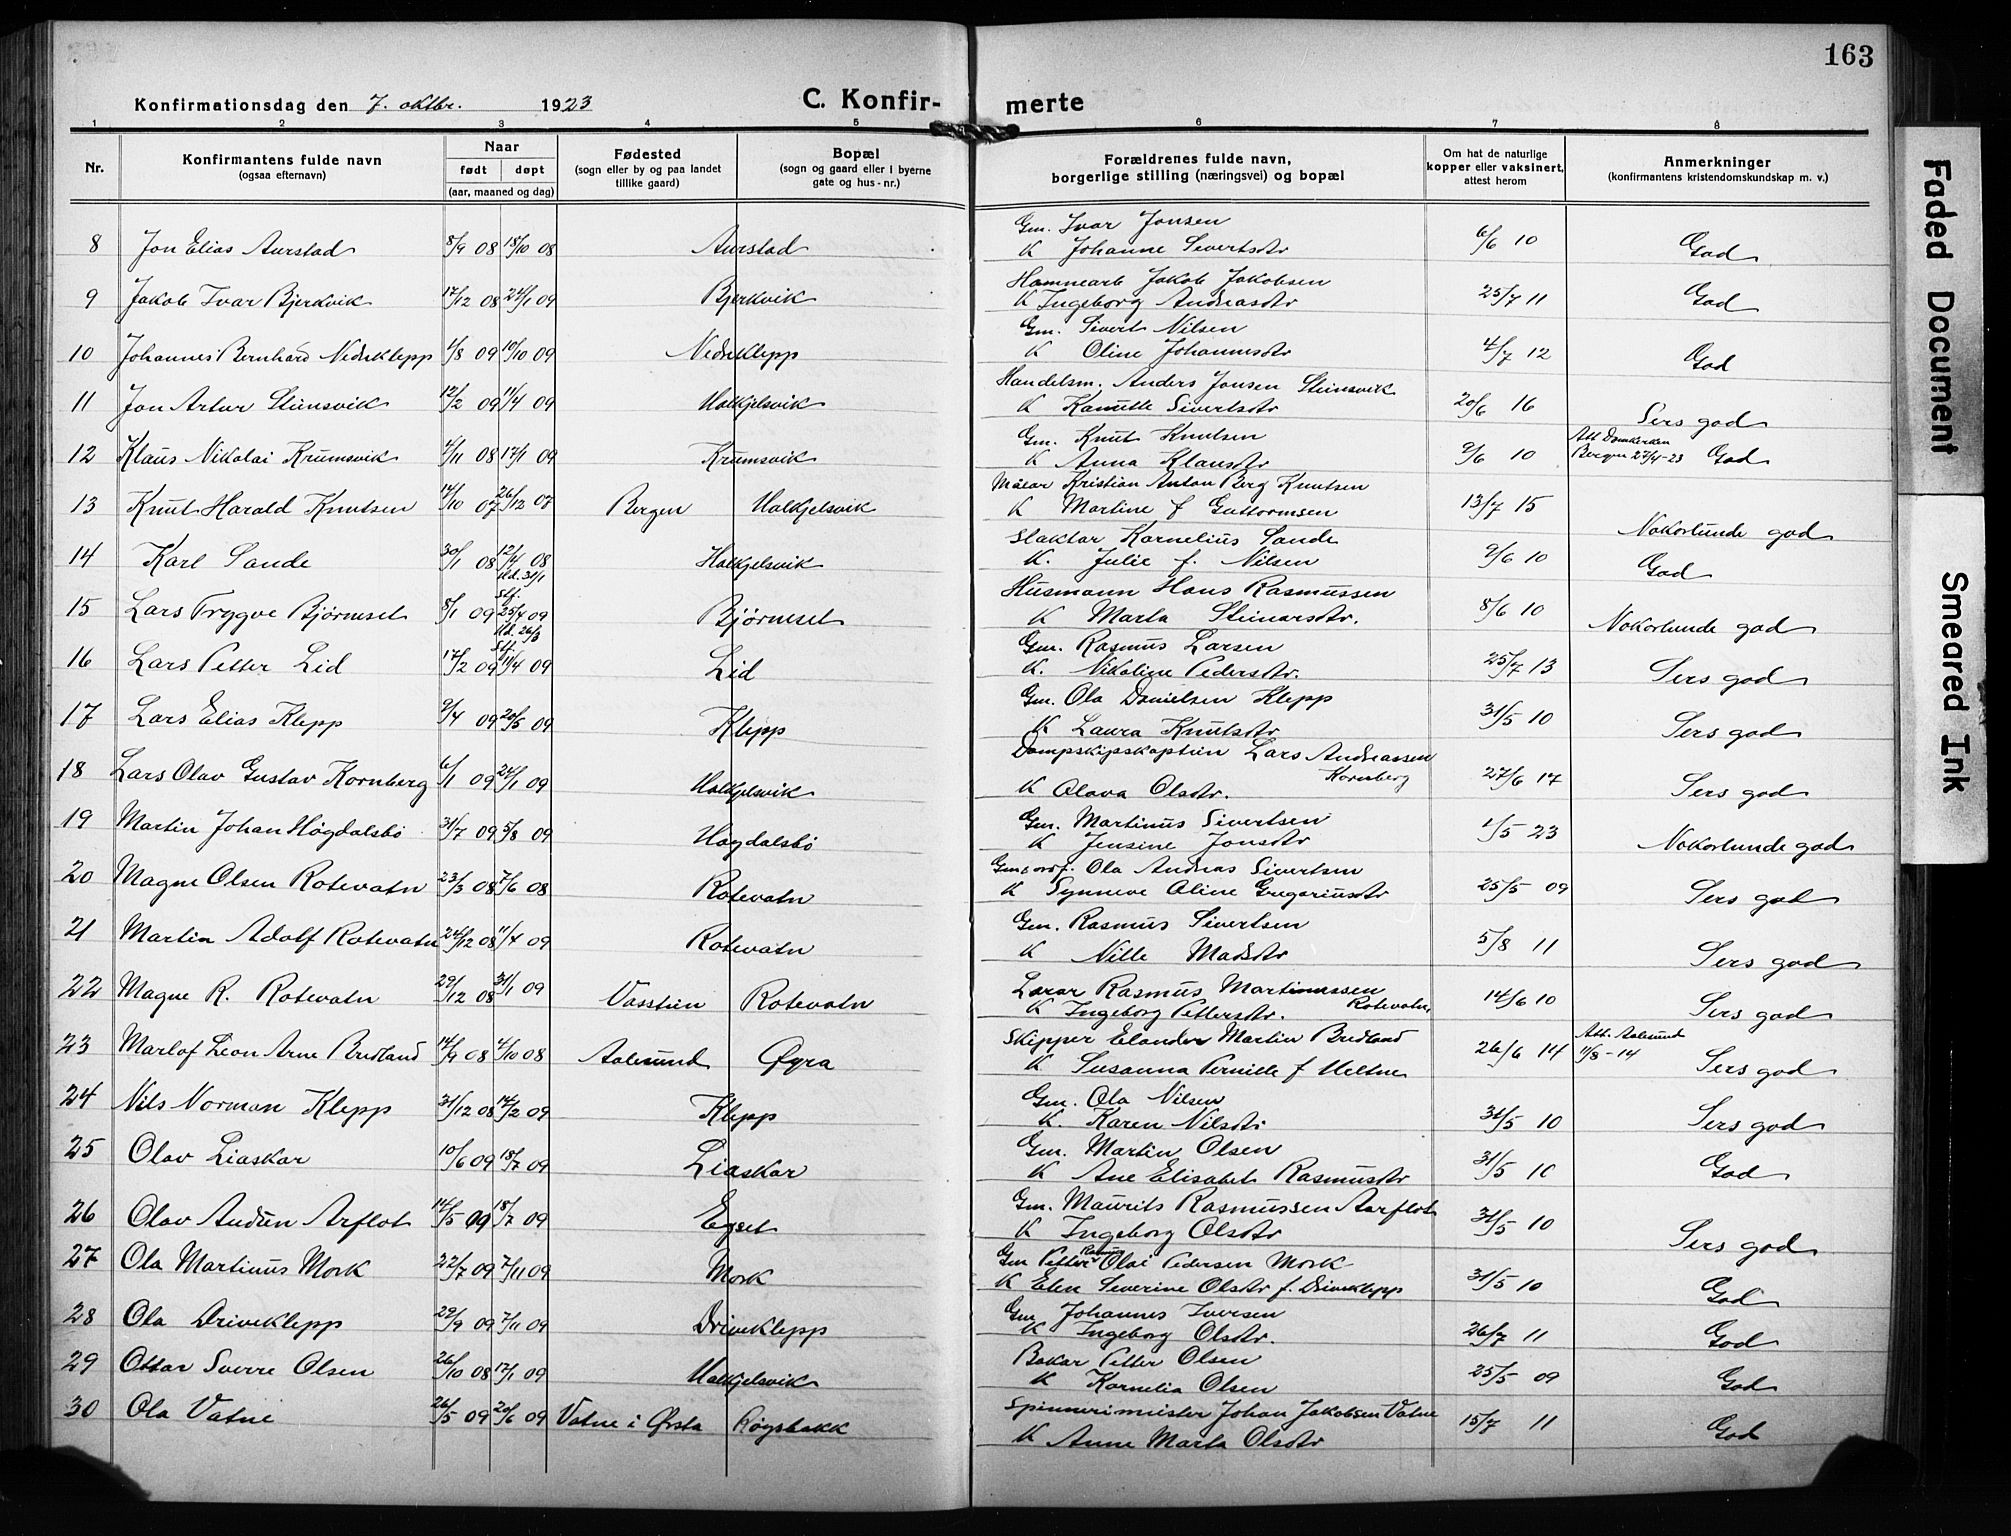 163
Konfirmationsdag den 7. oktbr. 1923
C. Konfir-merte
1 2 3 4 5 6 7 8
Nr.
Konfirmantens fulde navn
(ogsaa efternavn)
Naar
født døpt
(aar, maaned og dag)
Fødested
(sogn eller by og paa landet
tillike gaard)
Bopæl
(sogn og gaard eller i byerne
gate og hus-nr.)
Forældrenes fulde navn,
borgerlige stilling (næringsvei) og bopæl
Om hat de naturlige
kopper eller vaksinert,
attest herom
Anmerkninger
(konfirmantens kristendomskundskap m. v.)
8 Jon Elias Aurstad 8/9 08 18/10 08 Aurstad Gm. Ivar Jonsen 6/6 10 God
K Johanne Sivertsdtr
9 Jakob Ivar Bjerkvik 17/12 08 24/1 09 Bjerkvik Hamnearb Jakob Jakobsen 25/7 11 God
K Ingeborg Andreasdtr
10 Johannes Bernhard Nedreklepp 1/8 09 10/10 09 Nedreklepp Gm. Sivert Nilsen 4/7 12 God
K Oline Johannesdtr
11 Jon Artur Steinsvik 12/2 09 11/4 09 Halkjelsvik Handelsm. Anders Jonsen Steinsvik 20/6 16 Sers god
K Kamille Sivertsdtr
12 Klaus Nikolai Krumsvik 4/11 08 17/1 09 Krumsvik Gm. Knut Knutsen 9/6 10 Att Domkirken
Bergen 27/4-23 God
K Anna Klausdtr
13 Knut Harald Knutsen 14/10 07 26/12 07 Bergen Halkjelsvik Målar Kristian Anton Berg Knutsen 13/7 15 Nokorlunde god
K Martine f Guttormsen
14 Karl Sande 30/1 08 12/4 08 Halkjelsvik Slaktar Kornelius Sande 9/6 10 God
K. Julie f. Nilsen
hd. 31/1
stf.
15 Lars Trygve Bjørneset 8/1 09 25/4 09 Bjørneset Husmann Hans Rasmussen 8/6 10 Nokorlunde god
K Marta Steinarsdtr.
hd. 26/3
stf.
16 Lars Petter Lid 17/2 09 11/4 09 Lid Gm. Rasmus Larsen 25/7 13 Sers god
K. Nikoline Pedersdtr.
17 Lars Elias Klepp 9/4 09 20/5 09 Klepp Gm. Ola Danielsen Klepp 31/5 10 Sers god
K Laura Knutsdtr
18 Lars Olav Gustav Kornberg 6/1 09 24/1 09 Halkjelsvik Dampskipskaptein Lars Andreassen
Kornberg 27/6 17 Sers god
K Olava Olsdtr.
19 Martin Johan Høgdalsbø 31/7 09 5/8 09 Høgdalsbø Gm. Martinus Sivertsen 1/5 23 Nokorlunde god
K Jensine Jonsdtr
20 Magne Olsen Rotevatn 23/3 08 7/6 08 Rotevatn Gm. Ola Andreas Sivertsen 25/5 09 Sers god
K Synneve Oline Gregoriusdtr
21 Martin Adolf Rotevatn 24/12 08 11/4 09 Rotevatn Gm. Rasmus Sivertsen 5/8 11 Sers god
K Nille Madsdtr
22 Magne R. Rotevatn 29/12 08 31/1 09 Vasstun Rotevatn Lærar Rasmus Martinussen
Rotevatn 14/6 10 Sers god
K Ingeborg Pettersdtr.
23 Marlof Leon Arne Bredland 14/9 08 4/10 08 Aalesund Øyra Skipper Elander Martin Bredland 26/6 14 Att. Aalesund
11/8-14 Sers god
K Susanna Pernille f Meltne
24 Nils Norman Klepp 31/12 08 14/2 09 Klepp Gm. Ola Nilsen 31/5 10 Sers god
K. Karen Nilsdtr
25 Olav Liaskar 10/6 09 18/7 09 Liaskar Gm. Martin Olsen 31/5 10 God
K Ane Elisabet Rasmusdtr
26 Olav Audun Arflot 14/5 09 18/7 09 Egset Gm. Maurits Rasmussen Aarflot 31/5 10 Sers god
K Ingeborg Olsdtr
27 Ola Martinus Mork 22/7 09 7/11 09 Mork Gm Petter Rasmus Olai Pedersen Mork 31/5 10 God
K Elen Severine Olsdtr f. Driveklepp
28 Ola Driveklepp 29/9 09 7/11 09 Driveklepp Gm Johannes Iversen 26/7 11 God
K Ingeborg Olsdtr.
29 Ottar Sverre Olsen 26/10 08 17/1 09 Halkjelsvik Bakar Petter Olsen 25/5 09 God
K Kornelia Olsen
30 Ola Vatne 26/5 09 20/6 09 Vatne i Ørsta Høgebakk Spinnerimeister Johan Jakobsen Vatne 15/7 11 God
K Anne Marta Olsdtr
Faded Document
Smeared Ink